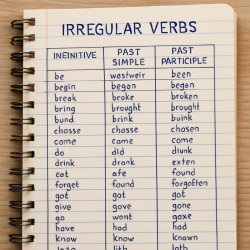 IRREGULAR VERBS
INFINITIVE PAST SIMPLE PAST PARTICIPLE
be wastweir been
begin began began
break broke broken
bring brought brought
bund brink buink
chosse chosse chosen
come came come
do did diunk
drink drank exten
eat afe found
forget found forgotten
got got got
give gove gone
go wont goxe
have had had
know know known